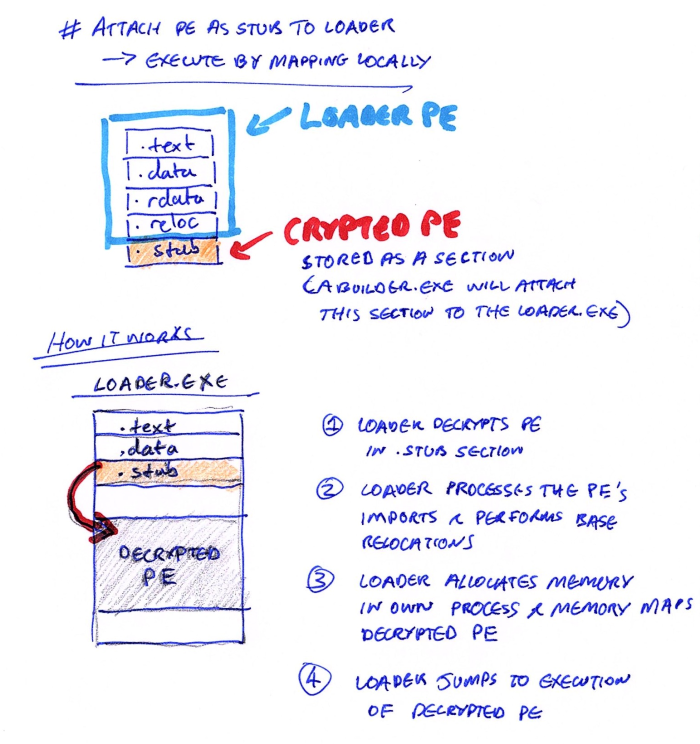 # ATTACH PE AS STUB TO LOADER
→ EXECUTE BY MAPPING LOCALLY
LOADER PE
.text
.data
.rdata
.reloc
.stub
CRYPTED PE
STORED AS A SECTION
(A BUILDER.EXE WILL ATTACH
THIS SECTION TO THE LOADER.EXE)
HOW IT WORKS
LOADER.EXE
.text
.data
.stub
DECRYPTED
PE
① LOADER DECRYPTS PE
IN .STUB SECTION
② LOADER PROCESSES THE PE'S
IMPORTS & PERFORMS BASE
RELOCATIONS
③ LOADER ALLOCATES MEMORY
IN OWN PROCESS & MEMORY MAPS
DECRYPTED PE
④ LOADER JUMPS TO EXECUTION
OF DECRYPTED PE